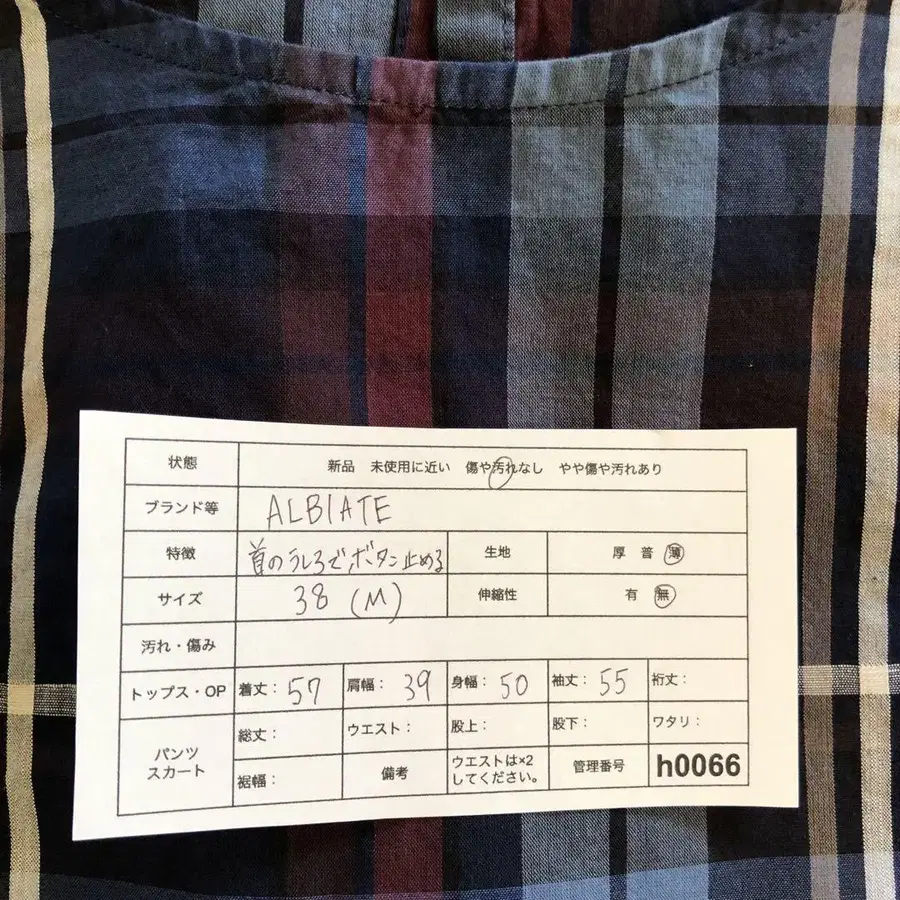 状態 新品 未使用に近い 傷や汚れなし やや傷や汚れあり
ブランド等 ALBIATE
特徴 首のうしろで、ボタン止める 生地 厚 普 薄
サイズ 38 (M) 伸縮性 有 無
汚れ・傷み
トップス・OP 着丈: 57 肩幅: 39 身幅: 50 袖丈: 55 裄丈:
パンツ
スカート
総丈: ウエスト: 股上: 股下: ワタリ:
裾幅: 備考 ウエストは×2
してください。 管理番号 h0066